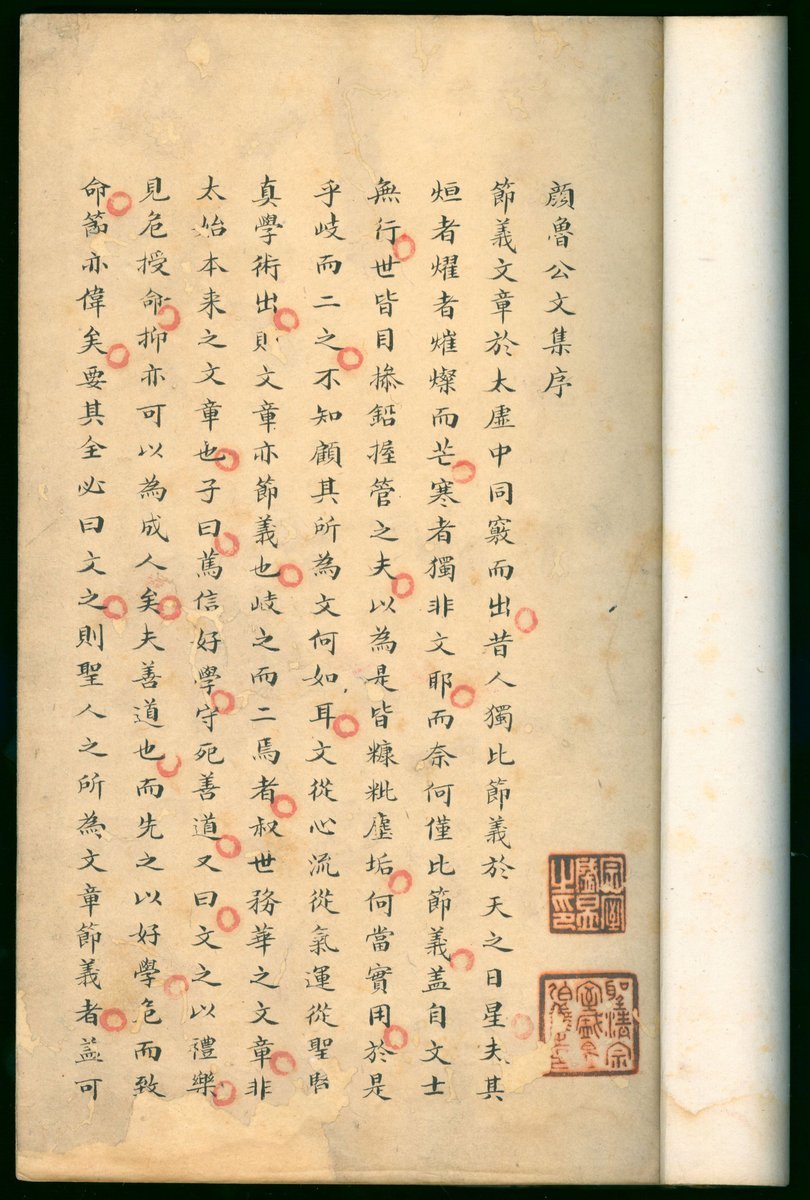 顔魯公文集序
節義文章於太虛中同竅而出昔人獨比節義於天之日星夫其
烜者燿者熣燦而芒寒者獨非文耶而奈何僅比節義蓋自文士
無行世皆目搽鉛握管之夫以為是皆糠粃塵垢何當實用於是
乎歧而二之不知顧其所為文何如耳文從心流從氣運從聖賢
真學術出則文章亦節義也歧之而二焉者叔世務華之文章非
太始本来之文章也子曰篤信好學守死善道又曰文之以禮樂
見危授命抑亦可以為成人矣夫善道也而先之以好學危而致
命節亦偉矣要其全必曰文之則聖人之所為文章節義者葢可